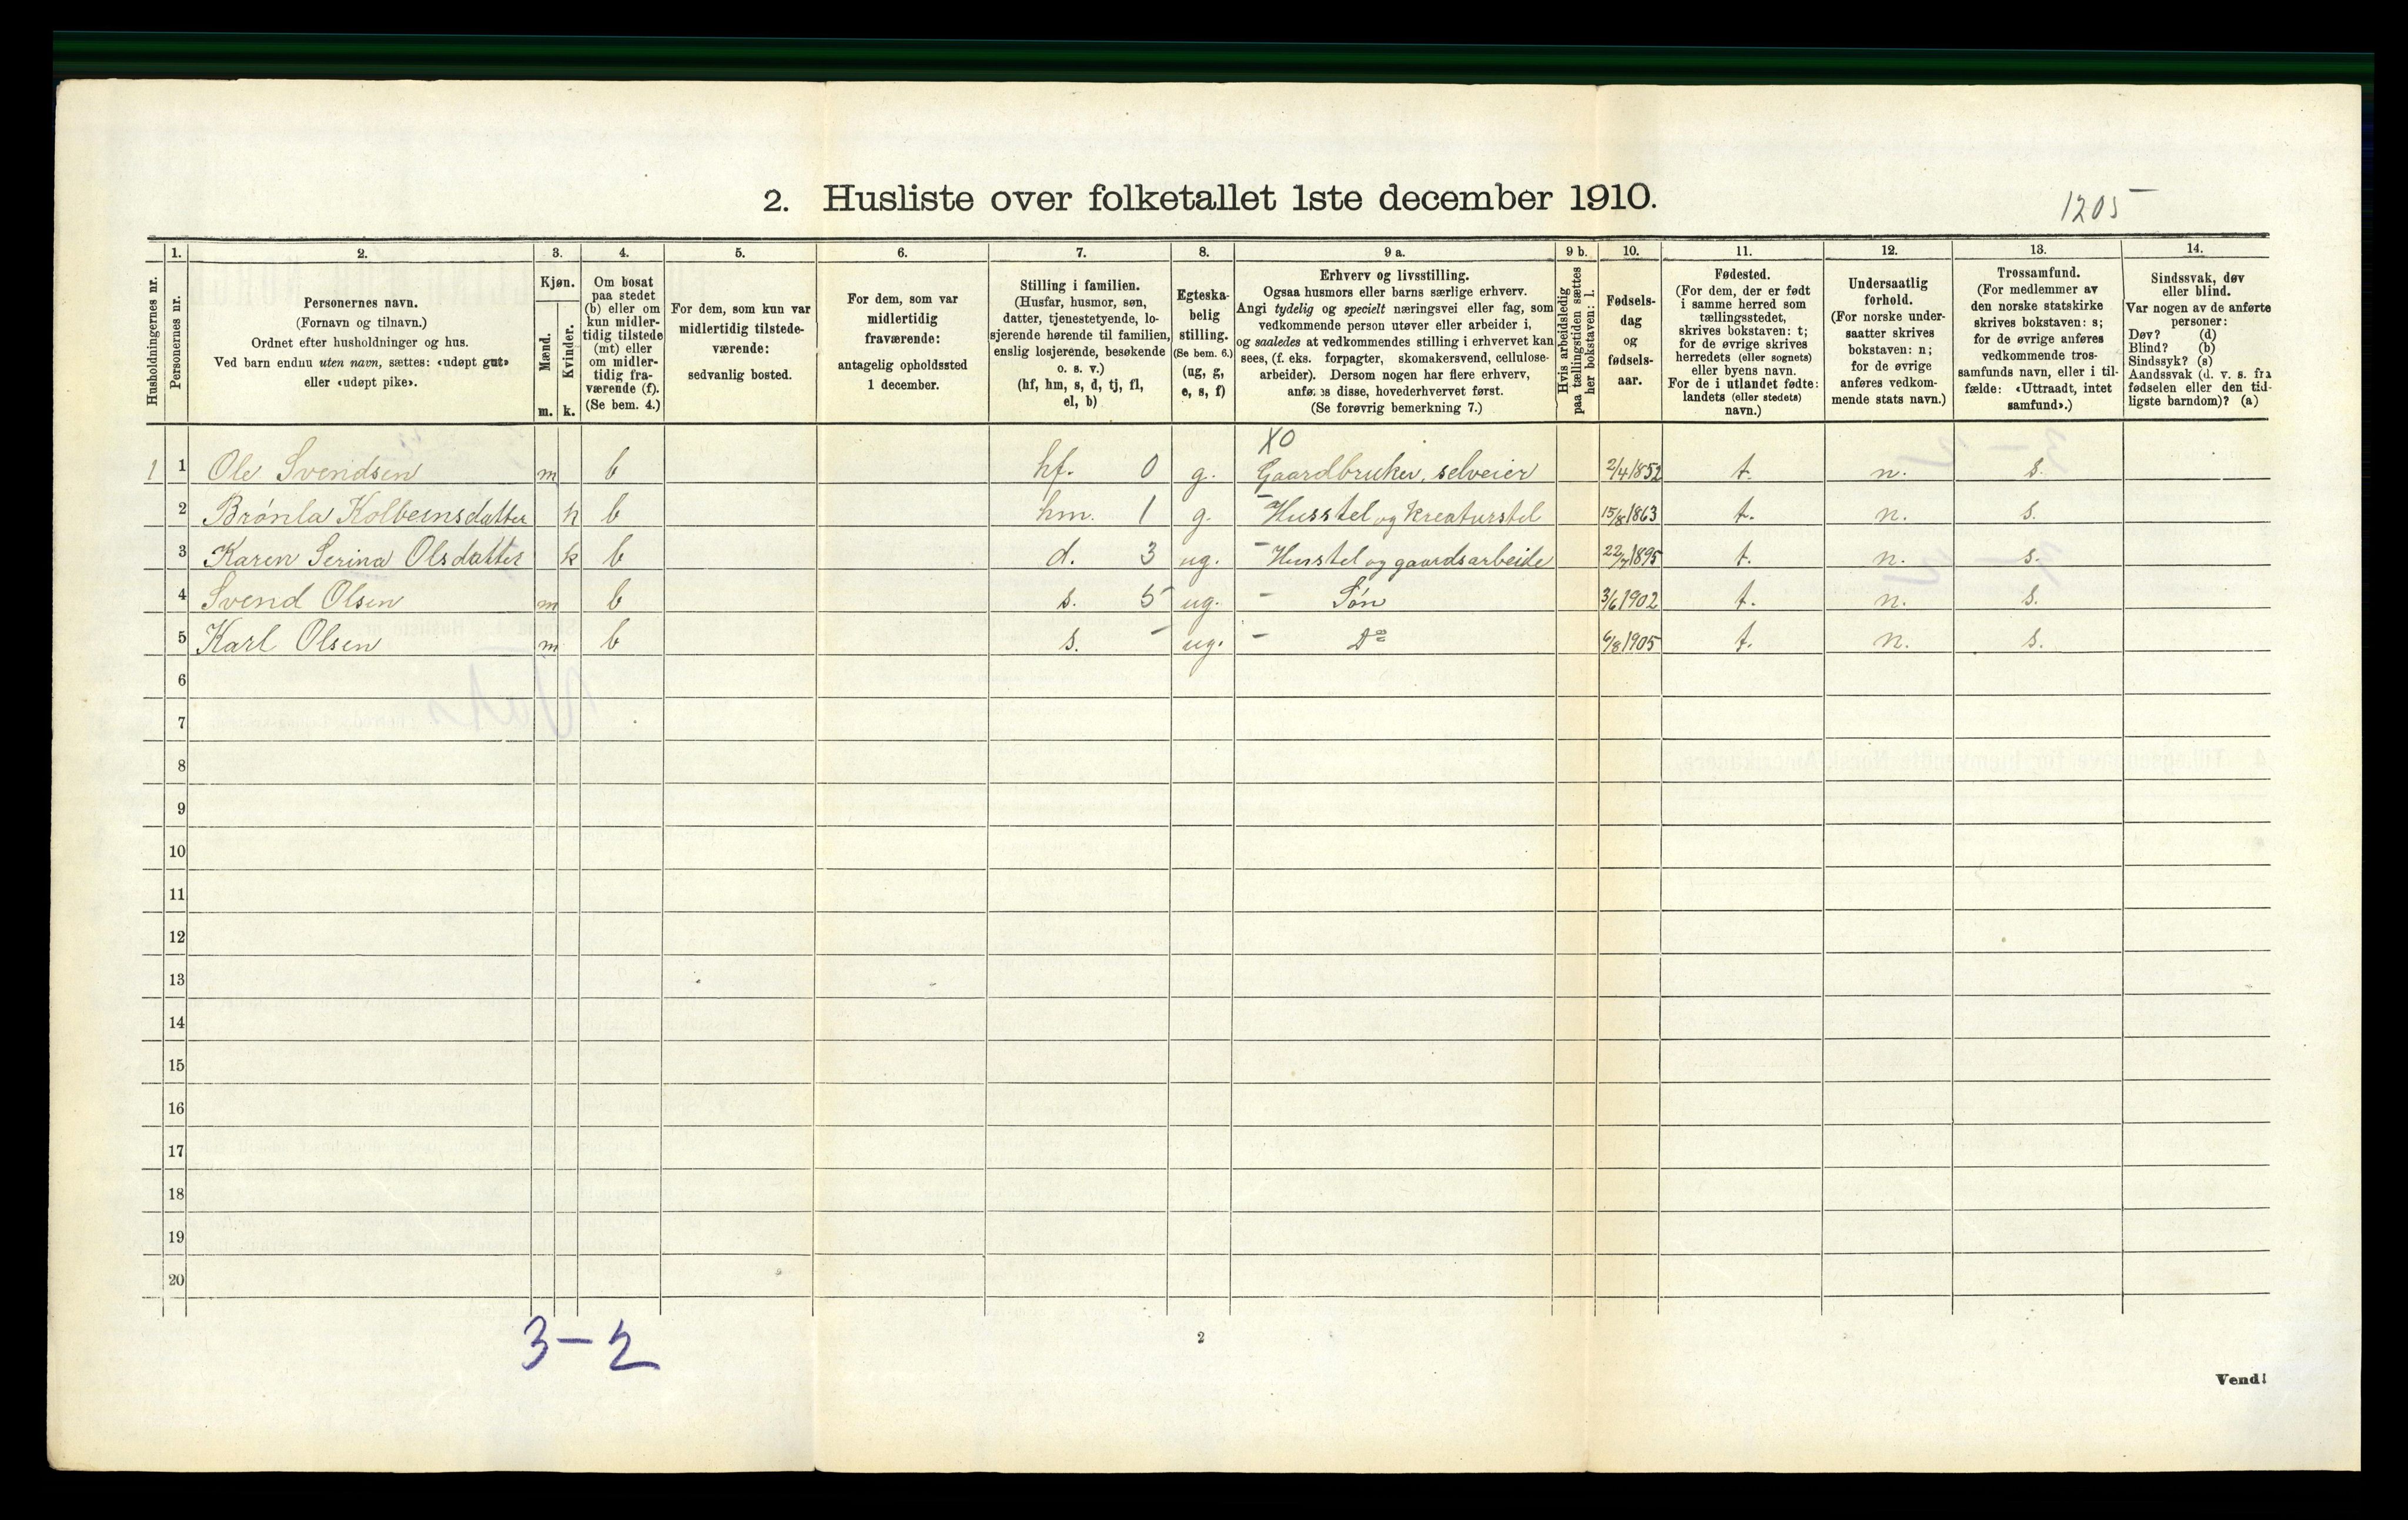 2. Husliste over folketallet 1ste december 1910.
1205
1. 2. 3. 4. 5. 6. 7. 8. 9 a. 9 b. 10. 11. 12. 13. 14.
Husholdningernes nr.
Personernes nr.
Personernes navn.
(Fornavn og tilnavn.)
Ordnet efter husholdninger og hus.
Ved barn endnu uten navn, sættes: «udøpt gut»
eller «udøpt pike».
Kjøn.
Mænd.
Kvinder.
m. k.
Om bosat
paa stedet
(b) eller om
kun midler-
tidig tilstede
(mt) eller
om midler-
tidig fra-
værende (f).
(Se bem. 4.)
For dem, som kun var
midlertidig tilstede-
værende:
sedvanlig bosted.
For dem, som var
midlertidig
fraværende:
antagelig opholdssted
1 december.
Stilling i familien.
(Husfar, husmor, søn,
datter, tjenestetyende, lo-
sjerende hørende til familien,
enslig losjerende, besøkende
o. s. v.)
(hf, hm, s, d, tj, fl,
el, b)
Egteska-
belig
stilling.
(Se bem. 6.)
(ug, g,
e, s, f)
Erhverv og livsstilling.
Ogsaa husmors eller barns særlige erhverv.
Angi tydelig og specielt næringsvei eller fag, som
vedkommende person utøver eller arbeider i,
og saaledes at vedkommendes stilling i erhvervet kan
sees, (f. eks. forpagter, skomakersvend, cellulose-
arbeider). Dersom nogen har flere erhverv,
anføres disse, hovederhvervet først.
(Se forøvrig bemerkning 7.)
Hvis arbeidsledig
paa tællingstiden sættes
her bokstaven: l.
Fødsels-
dag
og
fødsels-
aar.
Fødested.
(For dem, der er født
i samme herred som
tællingsstedet,
skrives bokstaven: t;
for de øvrige skrives
herredets (eller sognets)
eller byens navn.
For de i utlandet fødte:
landets (eller stedets)
navn.)
Undersaatlig
forhold.
(For norske under-
saatter skrives
bokstaven: n;
for de øvrige
anføres vedkom-
mende stats navn.)
Trossamfund.
(For medlemmer av
den norske statskirke
skrives bokstaven: s;
for de øvrige anføres
vedkommende tros-
samfunds navn, eller i til-
fælde: «Uttraadt, intet
samfund».)
Sindssvak, døv
eller blind.
Var nogen av de anførte
personer:
Døv? (d)
Blind? (b)
Sindssyk? (s)
Aandssvak (d. v. s. fra
fødselen eller den tid-
ligste barndom)? (a)
XO
1 1 Ole Svendsen m b hf. 0 g. Gaardbruker, selveier 2/4 1852 t. n. s.
2 Brónla Kolbeinsdatter k b hm. 1 g. - Husstel og kreaturstel 15/8 1863 t. n. s.
3 Karen Serina Olsdatter k b d. 3 ug. - Husstel og gaardsarbeide 22/7 1895 t. n. s.
4 Svend Olsen m b s. 5 ug. - Søn 3/6 1902 t. n. s.
5 Karl Olsen m b s. - ug. - Do 6/8 1905 t. n. s.
6
7
8
9
10
11
12
13
14
15
16
17
18
19
20
3-2
2
Vend!